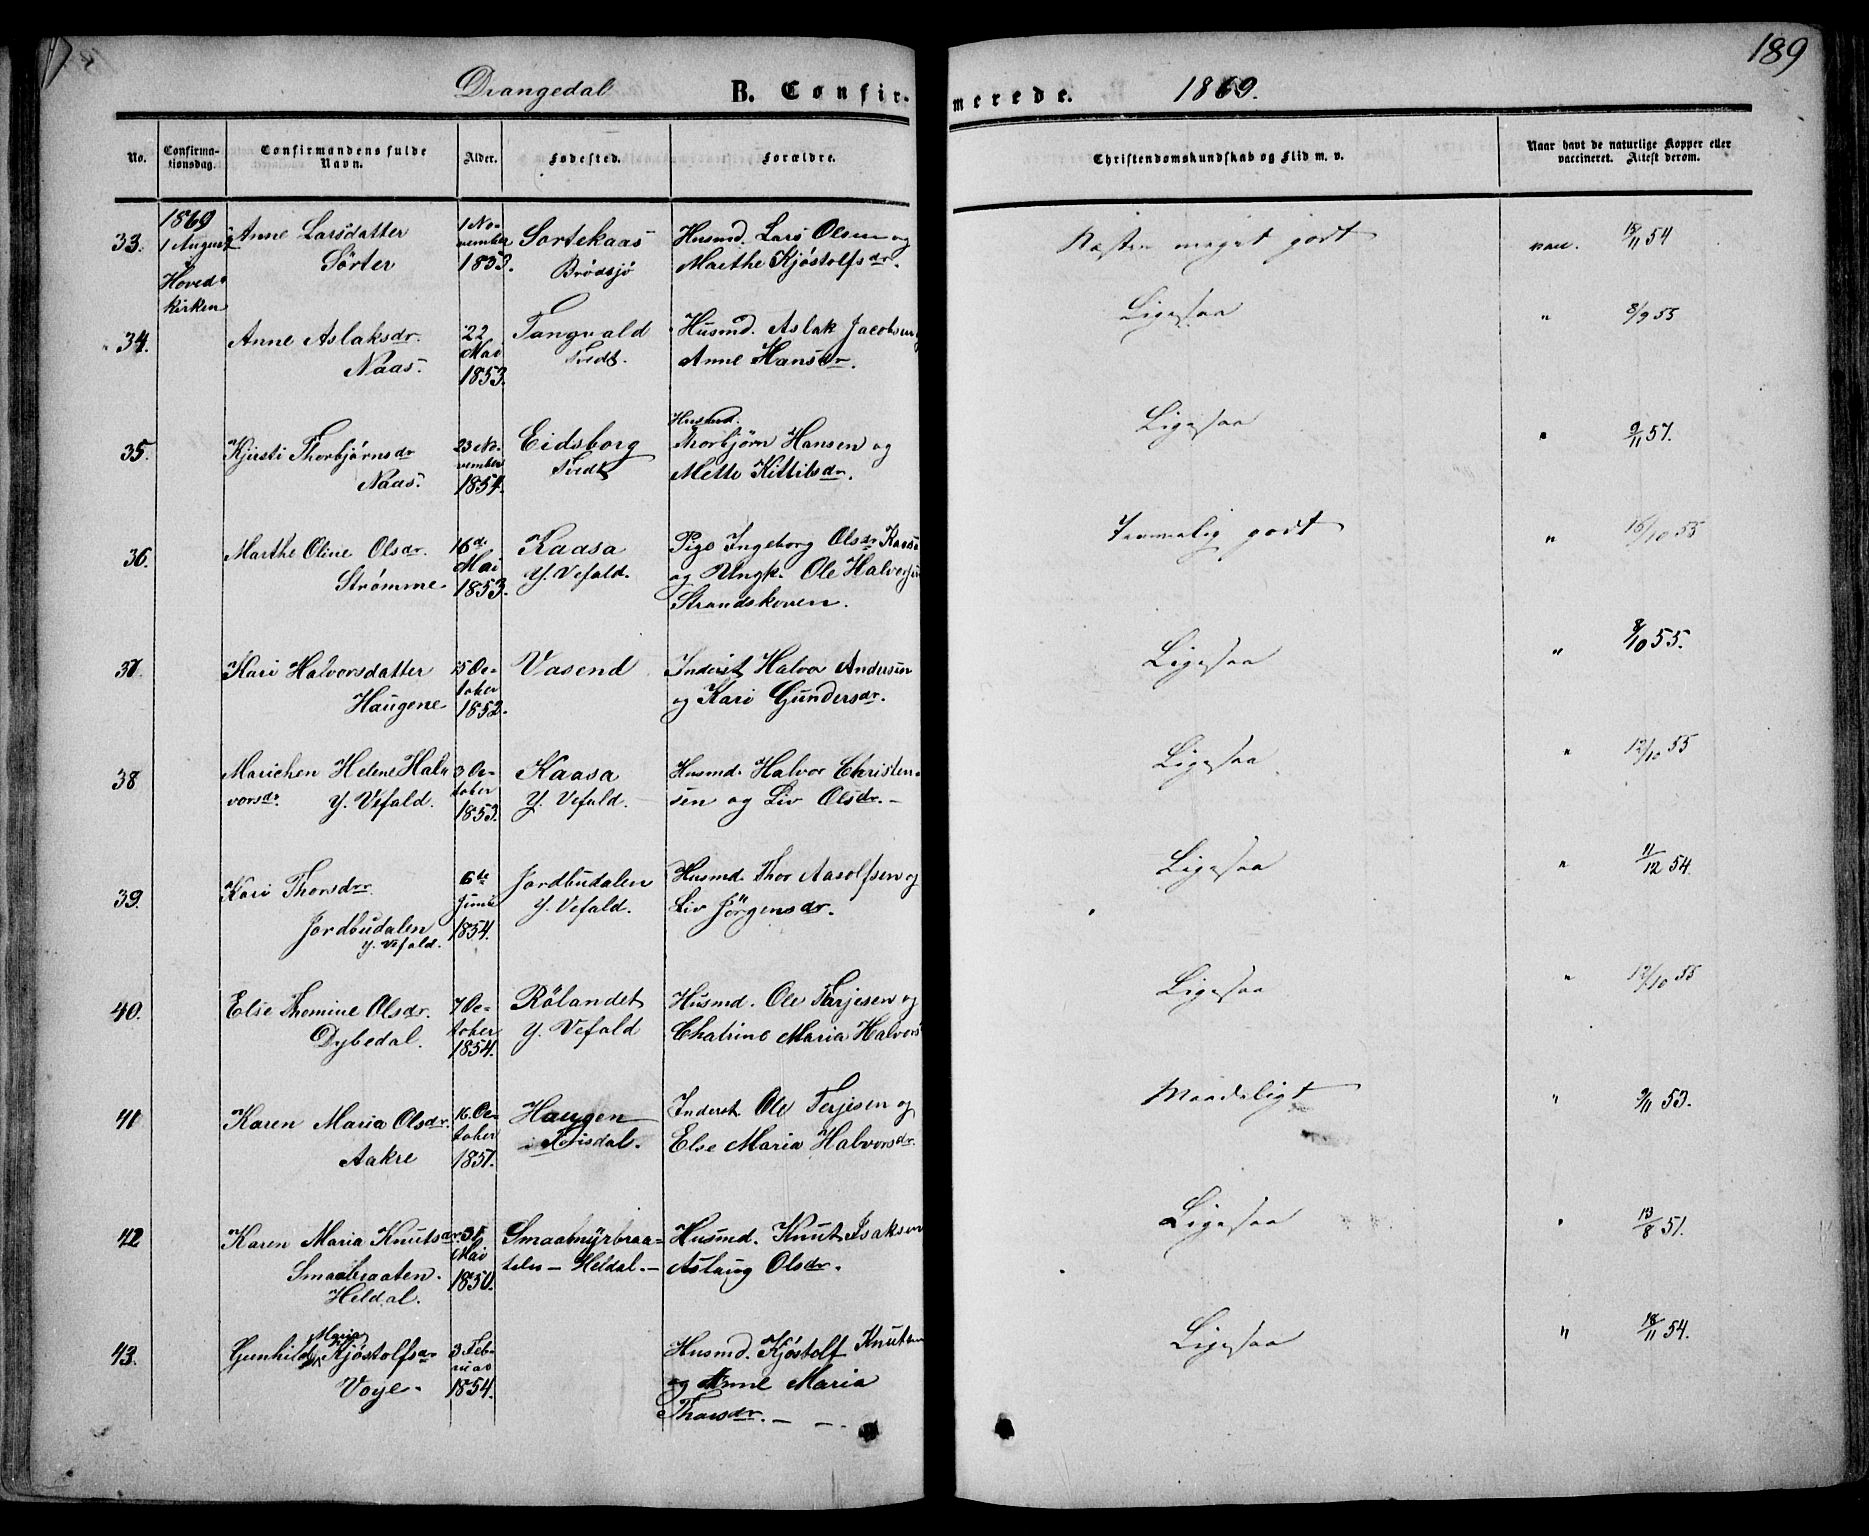 189
Drangedal B. Confirmerede. 1869.
No. Confirmationsdag. Confirmandens fulde Navn. Alder. Fødested. Forældre. Christendomskundskab og Flid m. v. Naar havt de naturlige Kopper eller vaccineret. Attest derom.
1869
1 August
Hoved-
kirken
33. Anne Larsdatter 1 No- Sortekaas Husmd. Lars Olsen og Næsten meget godt vac. 18/11 54
Sørter vember Brødsjø Marthe Kjøstolfsdr.
1853.
34. Anne Aslaksdr. 22 Tangvald Husmd. Aslak Jacobsen Ligesaa " 8/9 55
Naas. Mai Tvedt. Anne Hansdr.
1853.
Husmd.
35. Kjersti Thorbjørnsdr 23 No- Eidsborg Thorbjørn Hansen og Ligesaa " 9/11 57.
Naas. vember Tvedt Mette Kittilsdr.
1854.
36. Marthe Oline Olsdr. 16de Kaasa Pige Ingeborg Olsdr Kaasa Temmelig godt " 16/10 55
Strømme Mai Y. Vefald. og Ungk. Ole Halvorsen
1853. Strandskoven.
37. Kari Halvorsdatter 15 Oc- Vasend Inderst Halvor Andersen Ligesaa " 8/10 55.
Haugene tober og Kari Gundersdr.
1852.
38 Marichen Helene Hal- 3 Oc- Kaasa Husmd. Halvor Christen- Ligesaa " 12/10 55
vorsdr. Y. Vefald. tober Y. Vefald. sen og Liv Olsdr. –
1853.
39. Kari Thorsdr 6te Jordbudalen Husmd. Thor Aasolfsen og Ligesaa " 11/12 54.
Juni Y. Vefald. Liv Jörgensdr.
Jordbudalen 1854.
Y. Vefald.
40. Else Thomine Olsdr. 7 Oc- Rølandet Husmd. Ole Terjesen og Ligesaa " 12/10 55
Dybedal. tober Y. Vefald Chatrine Maria Halvors
1854.
41 Karen Maria Olsdr. 16. Oc- Haugen Inderst Ole Terjesen og Maadeligt " 9/11 53.
Aakre tober i Tørisdal. Else Maria Halvorsdr.
1851.
42 Karen Maria Knutsdr. Smaamyrbraa- Husmd. Knut Isaksen Ligesaa " 13/8 51.
Smaabraaten. Mai Heldal. – Aslaug Olsdr.
Heldal. 1850.
Maria
43. Gunhild Kjøstolfsdr 3 Feb- Husmd. Kjøstolf Knutsen Ligesaa " 18/11 54.
Voje. ruar og Anne Maria
1854. Thorsdr. – – .